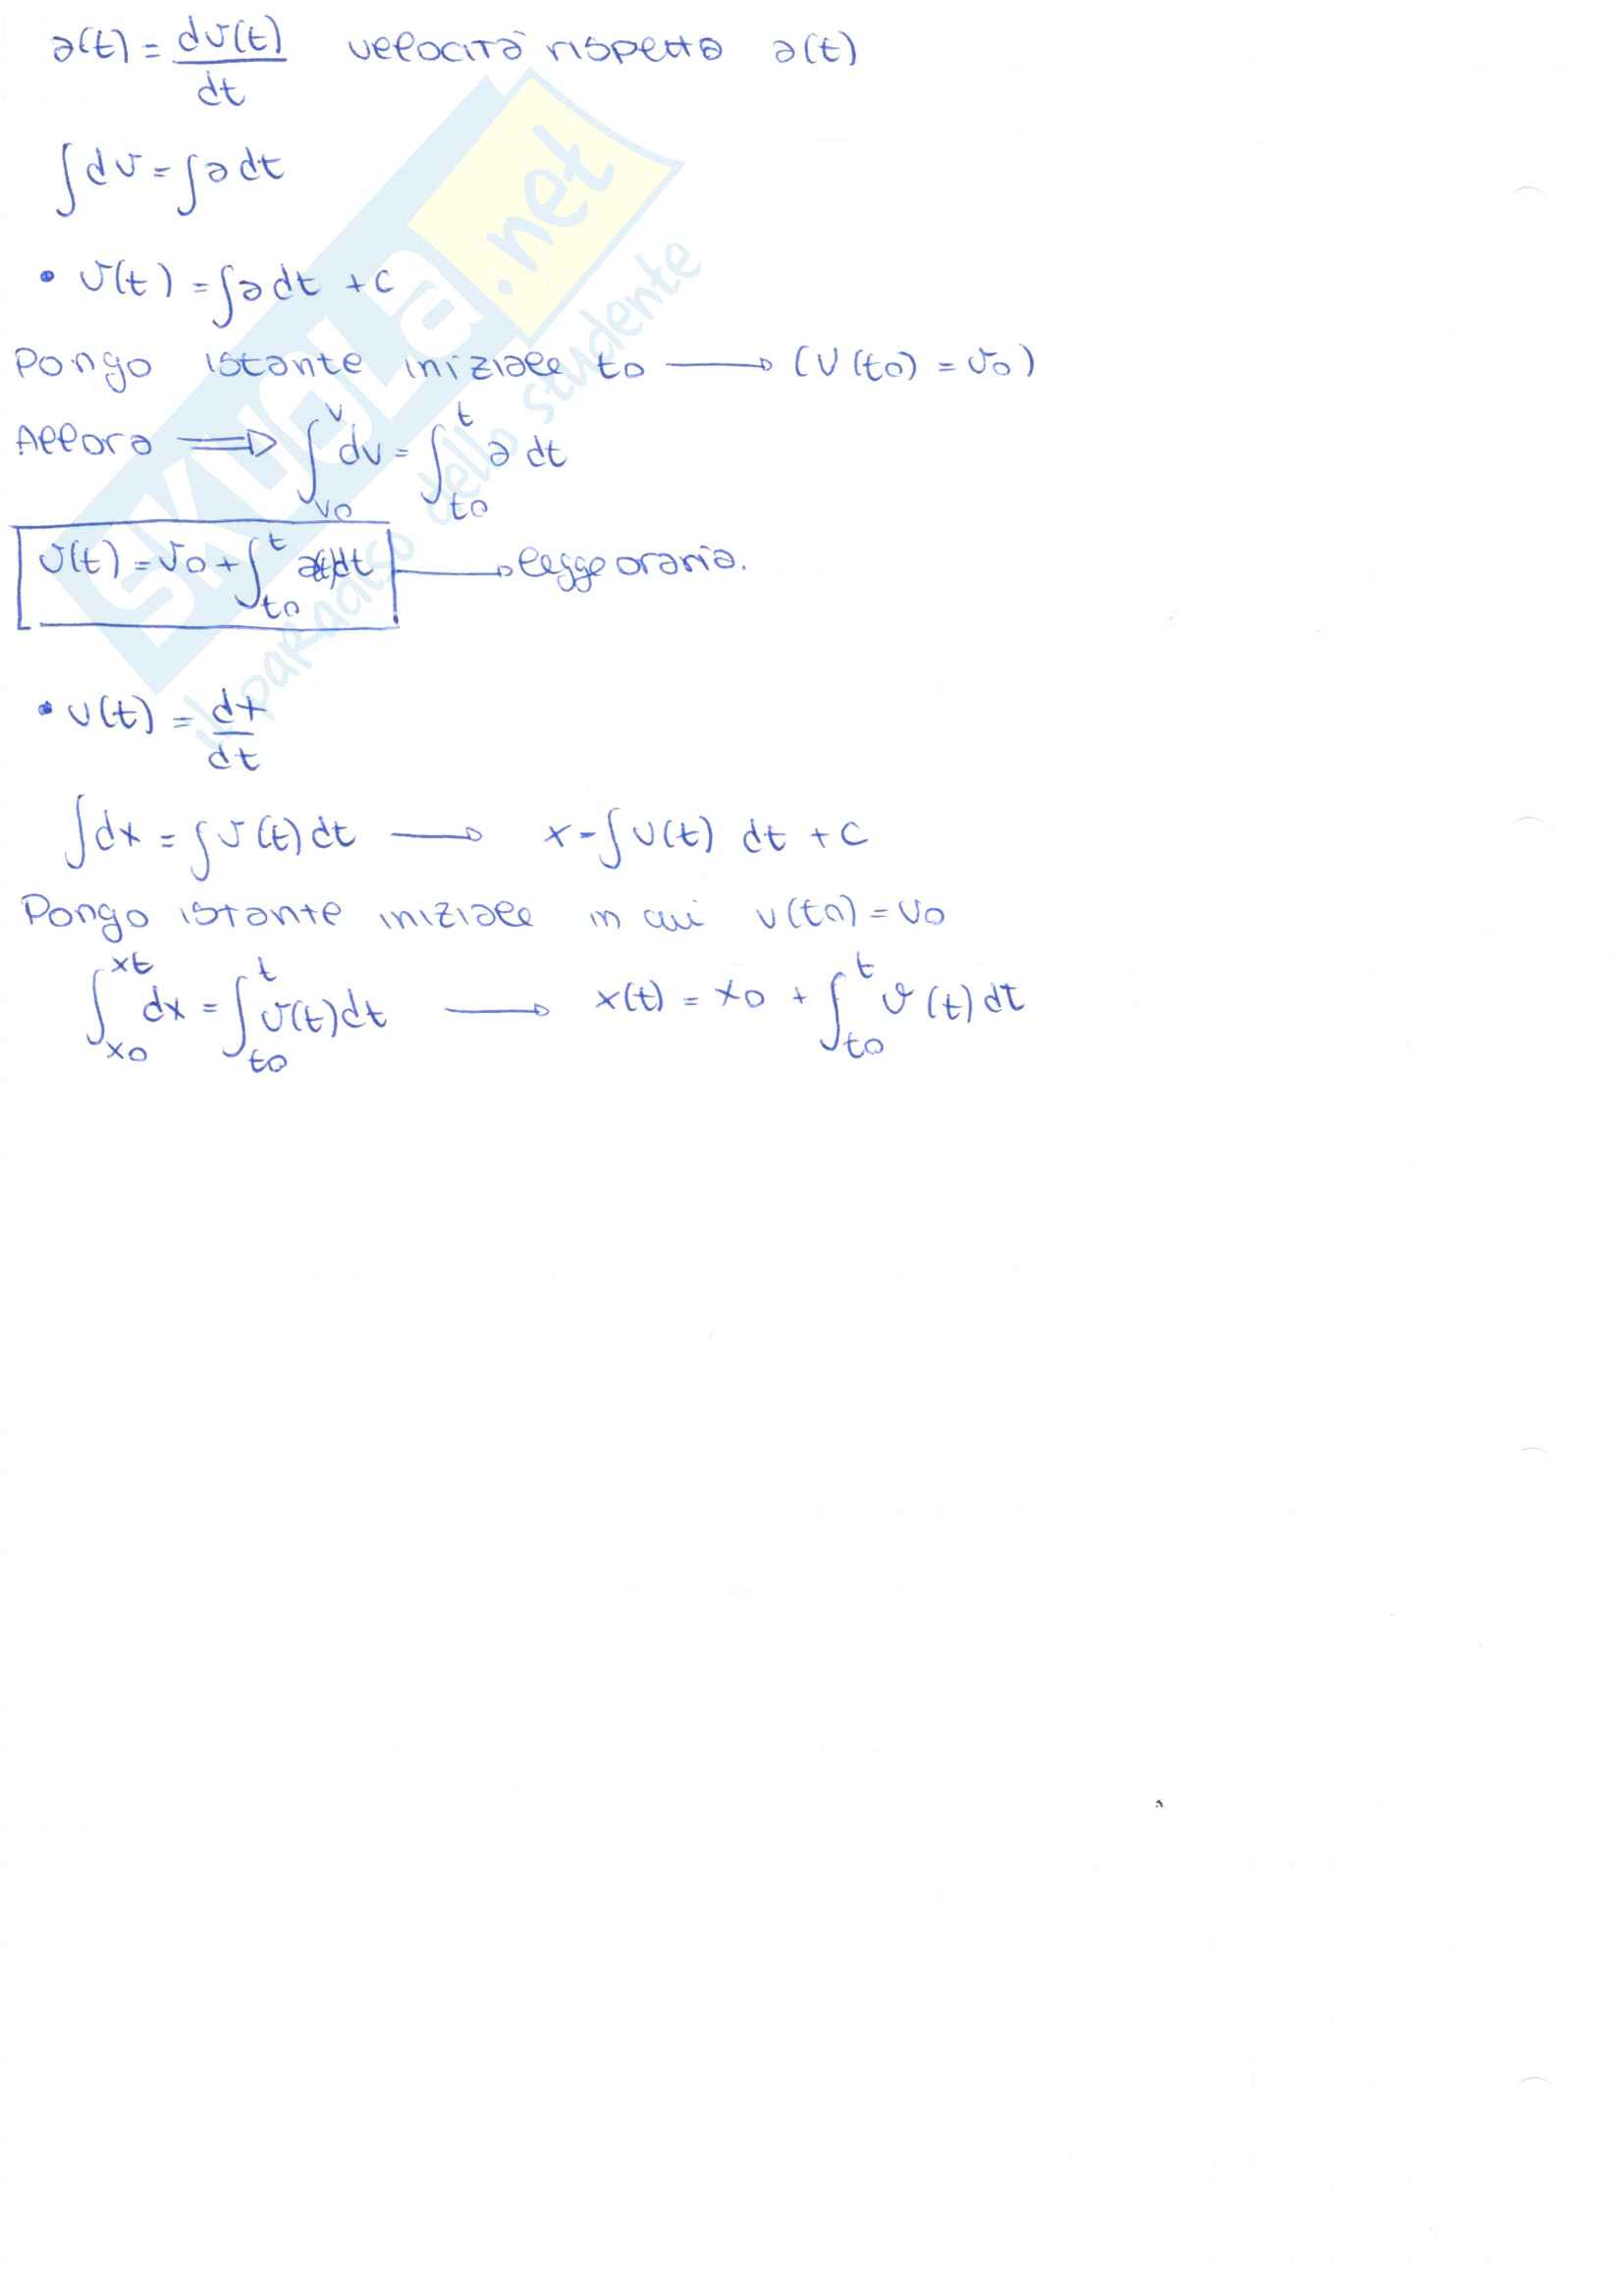 a(t) = dv(t)/dt velocità rispetto a(t)
∫dv = ∫a dt
• v(t) = ∫a dt + c
Pongo istante iniziale t0 → (v(t0) = v0)
Allora ⇒ ∫_{v0}^{v} dv = ∫_{t0}^{t} a dt
v(t) = v0 + ∫_{t0}^{t} a(t)dt → legge oraria.
• v(t) = dx/dt
∫dx = ∫v(t)dt → x = ∫v(t) dt + c
Pongo istante iniziale in cui v(t0) = v0
∫_{x0}^{xt} dx = ∫_{t0}^{t} v(t)dt → x(t) = x0 + ∫_{t0}^{t} v(t)dt
SKUOLA.net
il paradiso dello studente